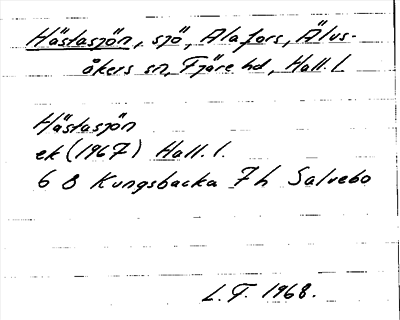 Hästasjön, sjö, Alafors, Älvs-
åkers sn, Fjäre hd, Hall. l.
Hästasjön
ek (1967) Hall. l.
6 B Kungsbacka 7 h Salvebo
L. T. 1968.